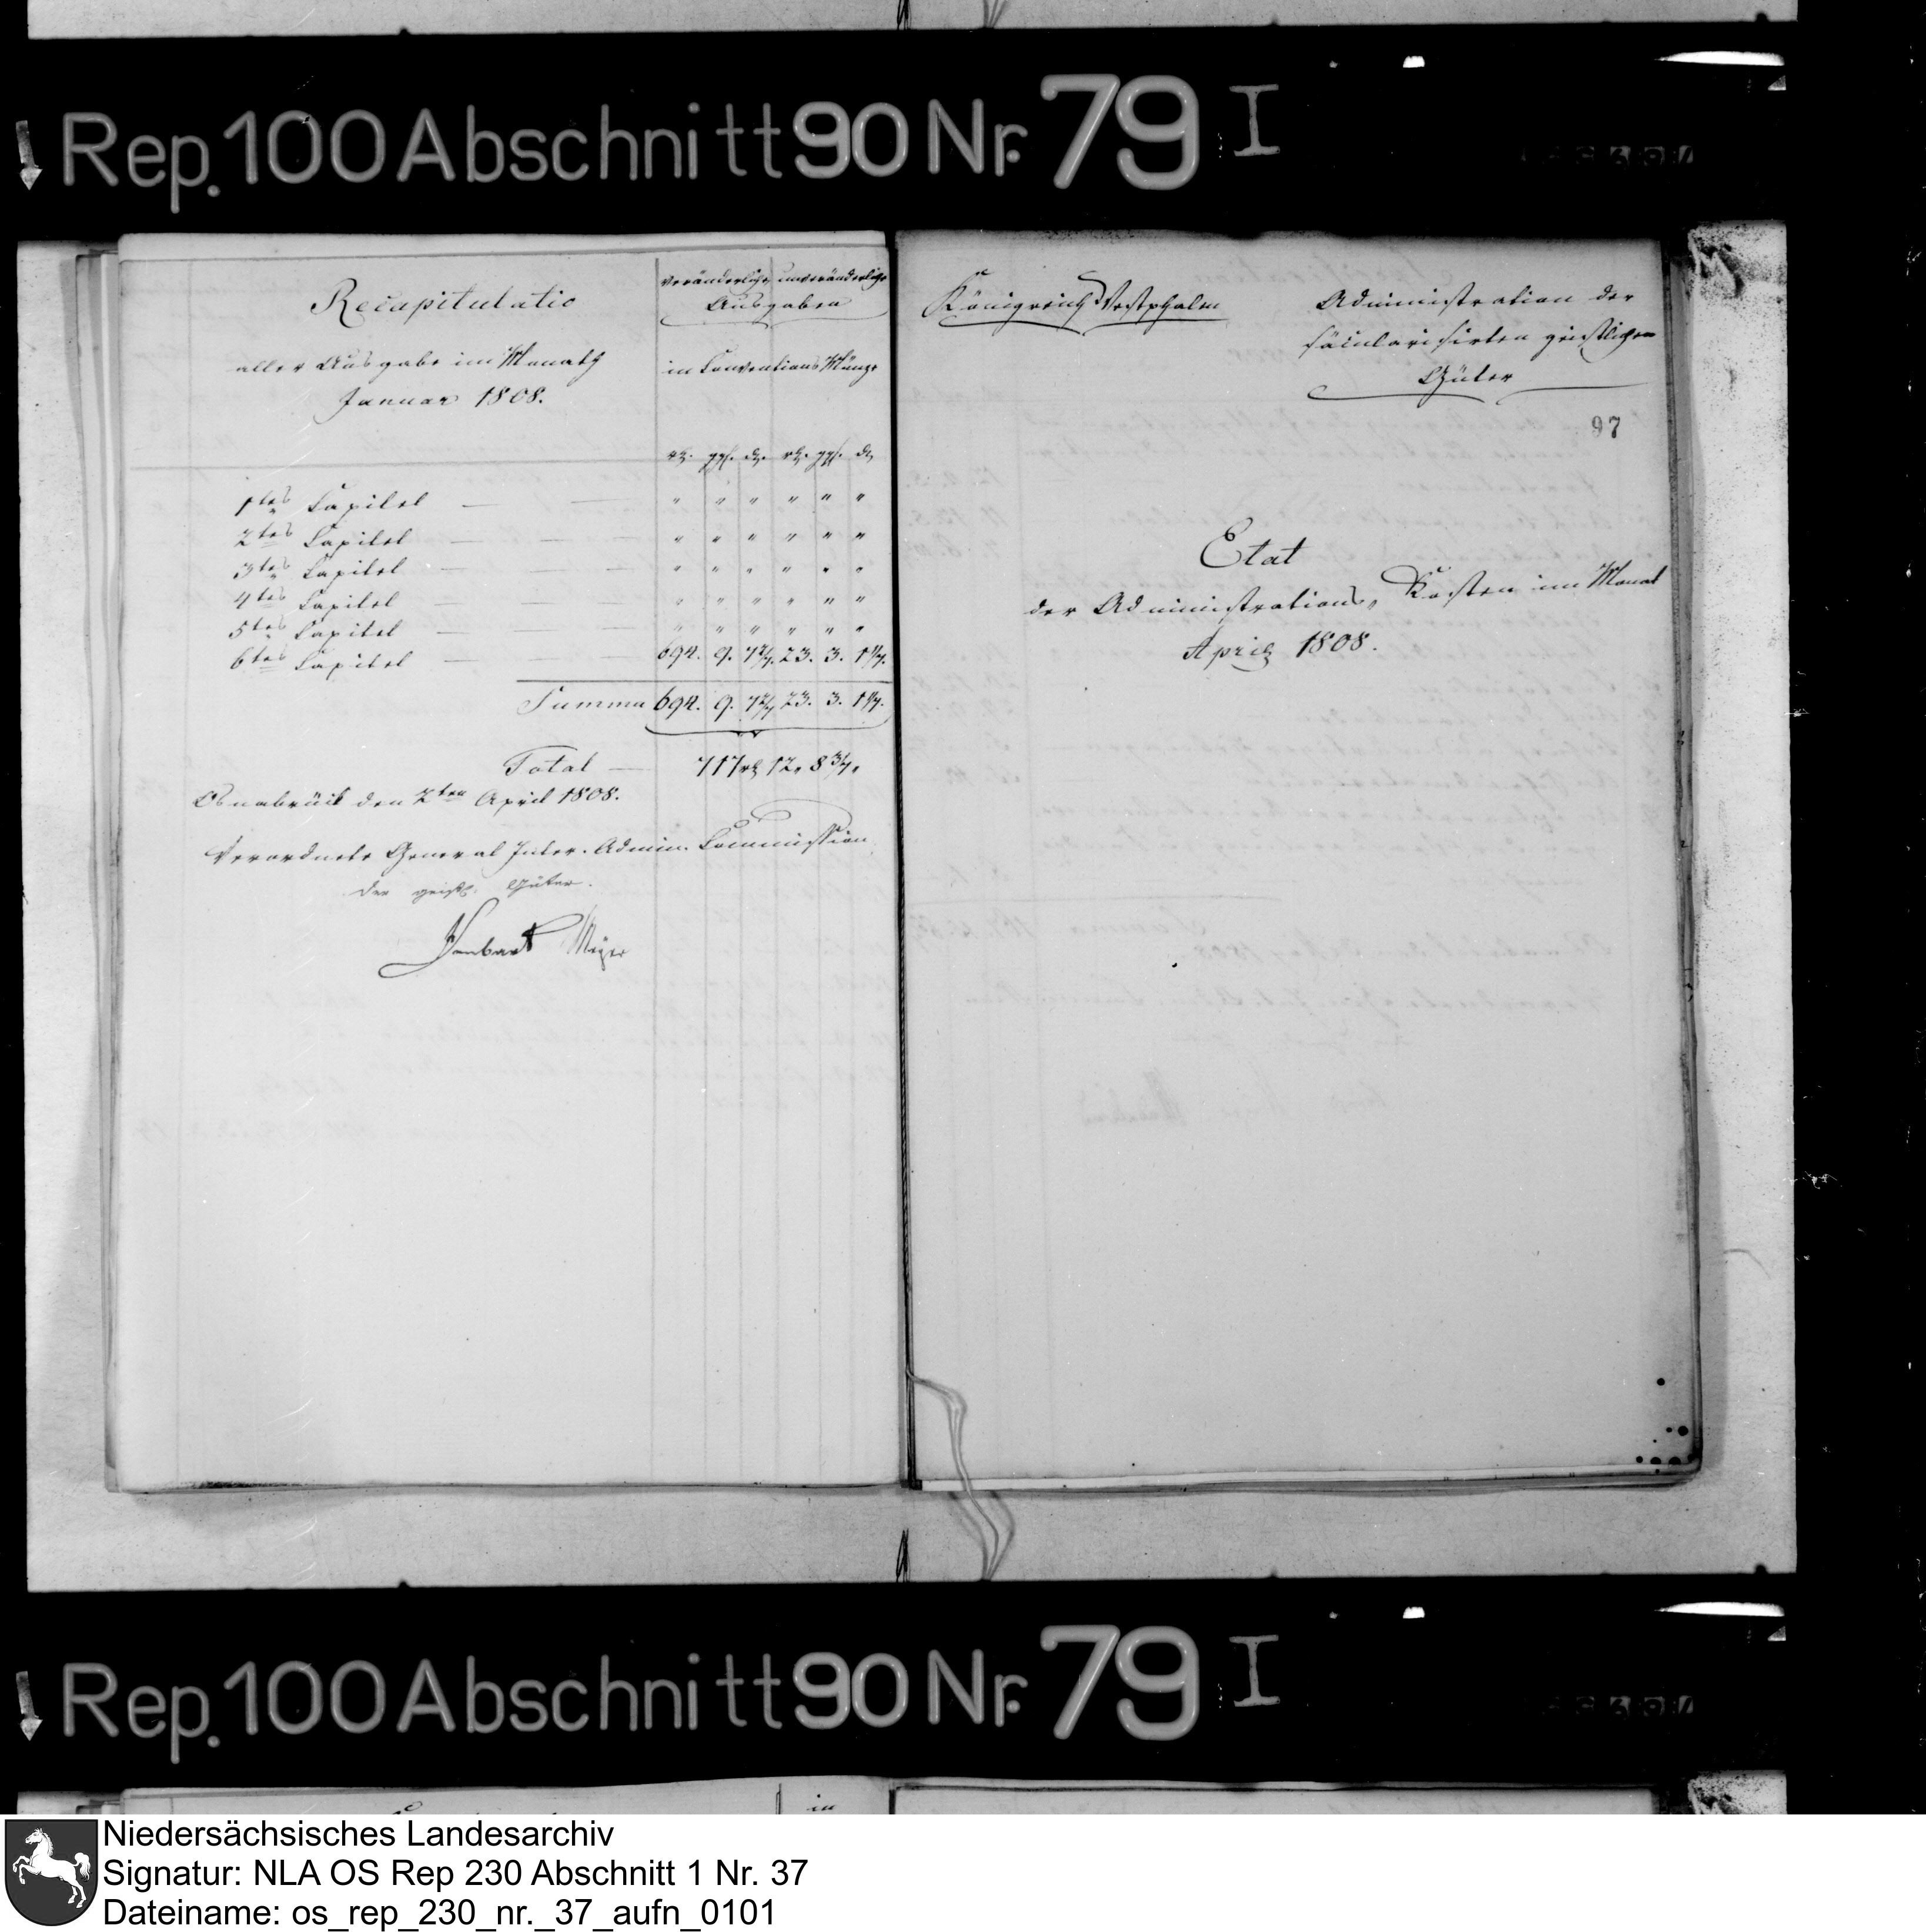 Rep. 100 Abschnitt 90 Nr. 79 I
Recapitulatio
aller Ausgabe im Monath
Januar 1808.
veränderliche unveränderliche
Ausgaben
in Conventions Münze
rth. ggr. d. rth. ggr. d.
1tes Capitel — — " " " " " "
2tes Capitel — — " " " " " "
3tes Capitel — — " " " " " "
4tes Capitel — — " " " " " "
5tes Capitel — — " " " " " "
6tes Capitel — — 694. 9. 7 2/7. 23. 3. 1 1/7.
Summa 694. 9. 7 2/7 23. 3. 1 1/7.
Total — 717 rth 12. 8 3/7.
Osnabrück den 2ten April 1808.
Verordnete General Inter. Admin. Commission
der geistl. Güter.
Meyer
Königreich Westphalen
Administration der
säcularisirten geistlichen
Güter
97
Etat
der Administrations, Kosten im Monat
April 1808.
Rep. 100 Abschnitt 90 Nr. 79 I
in
Niedersächsisches Landesarchiv
Signatur: NLA OS Rep 230 Abschnitt 1 Nr. 37
Dateiname: os_rep_230_nr._37_aufn_0101